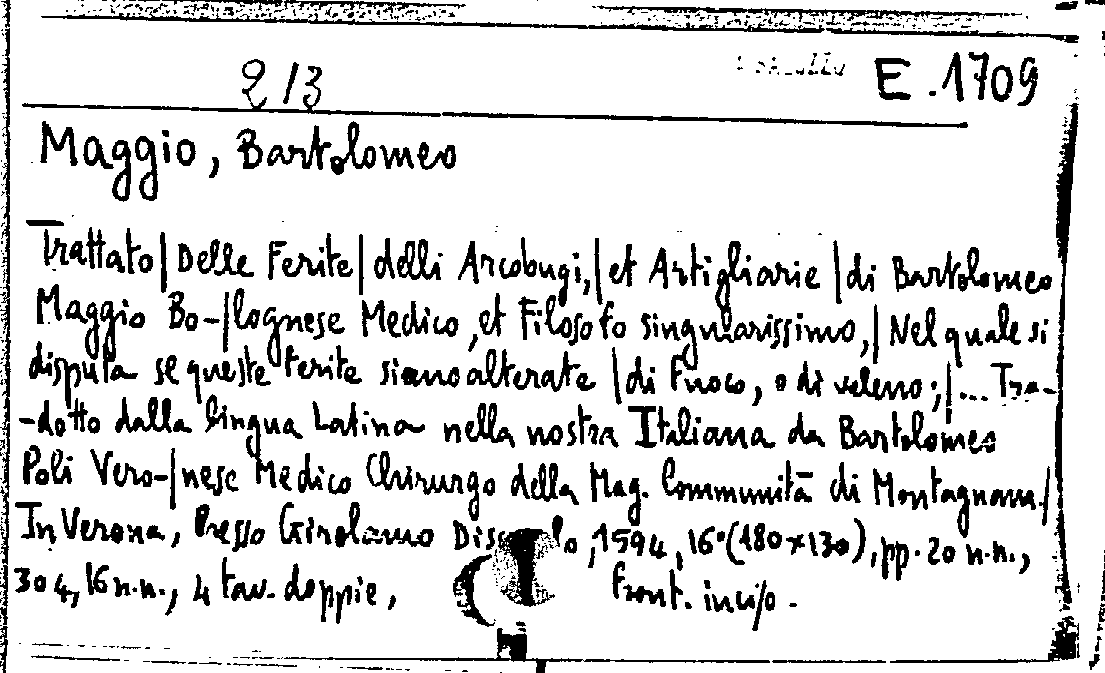 2/3
E. 1709
Maggio, Bartolomeo
Trattato | Delle Ferite | delli Arcobugi, | et Artigliarie | di Bartolomeo
Maggio Bo-|lognese Medico, et Filosofo singularissimo, | Nel quale si
disputa se queste ferite siano alterate | di fuoco, o di veleno; | ... Tra-
-dotto dalla lingua Latina nella nostra Italiana da Bartolomeo
Poli Vero-|nese Medico Chirurgo della Mag. Communità di Montagnana. |
In Verona, Presso Girolamo , 1594, 16° (180x130), pp. 20 n.n.,
304, 16 n.n., 4 tav. doppie, front. inciso.